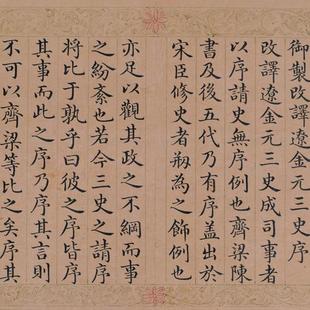 御製改譯遼金元三史序
改譯遼金元三史成司事者
以序請史無序例也齊梁陳
書及後五代乃有序蓋出於
宋臣修史者刱為之飾例也
亦足以觀其政之不綱而事
之紛紊也若今三史之請序
將比于孰乎曰彼之序皆序
其事而此之序乃序其言則
不可以齊梁等比之矣序其